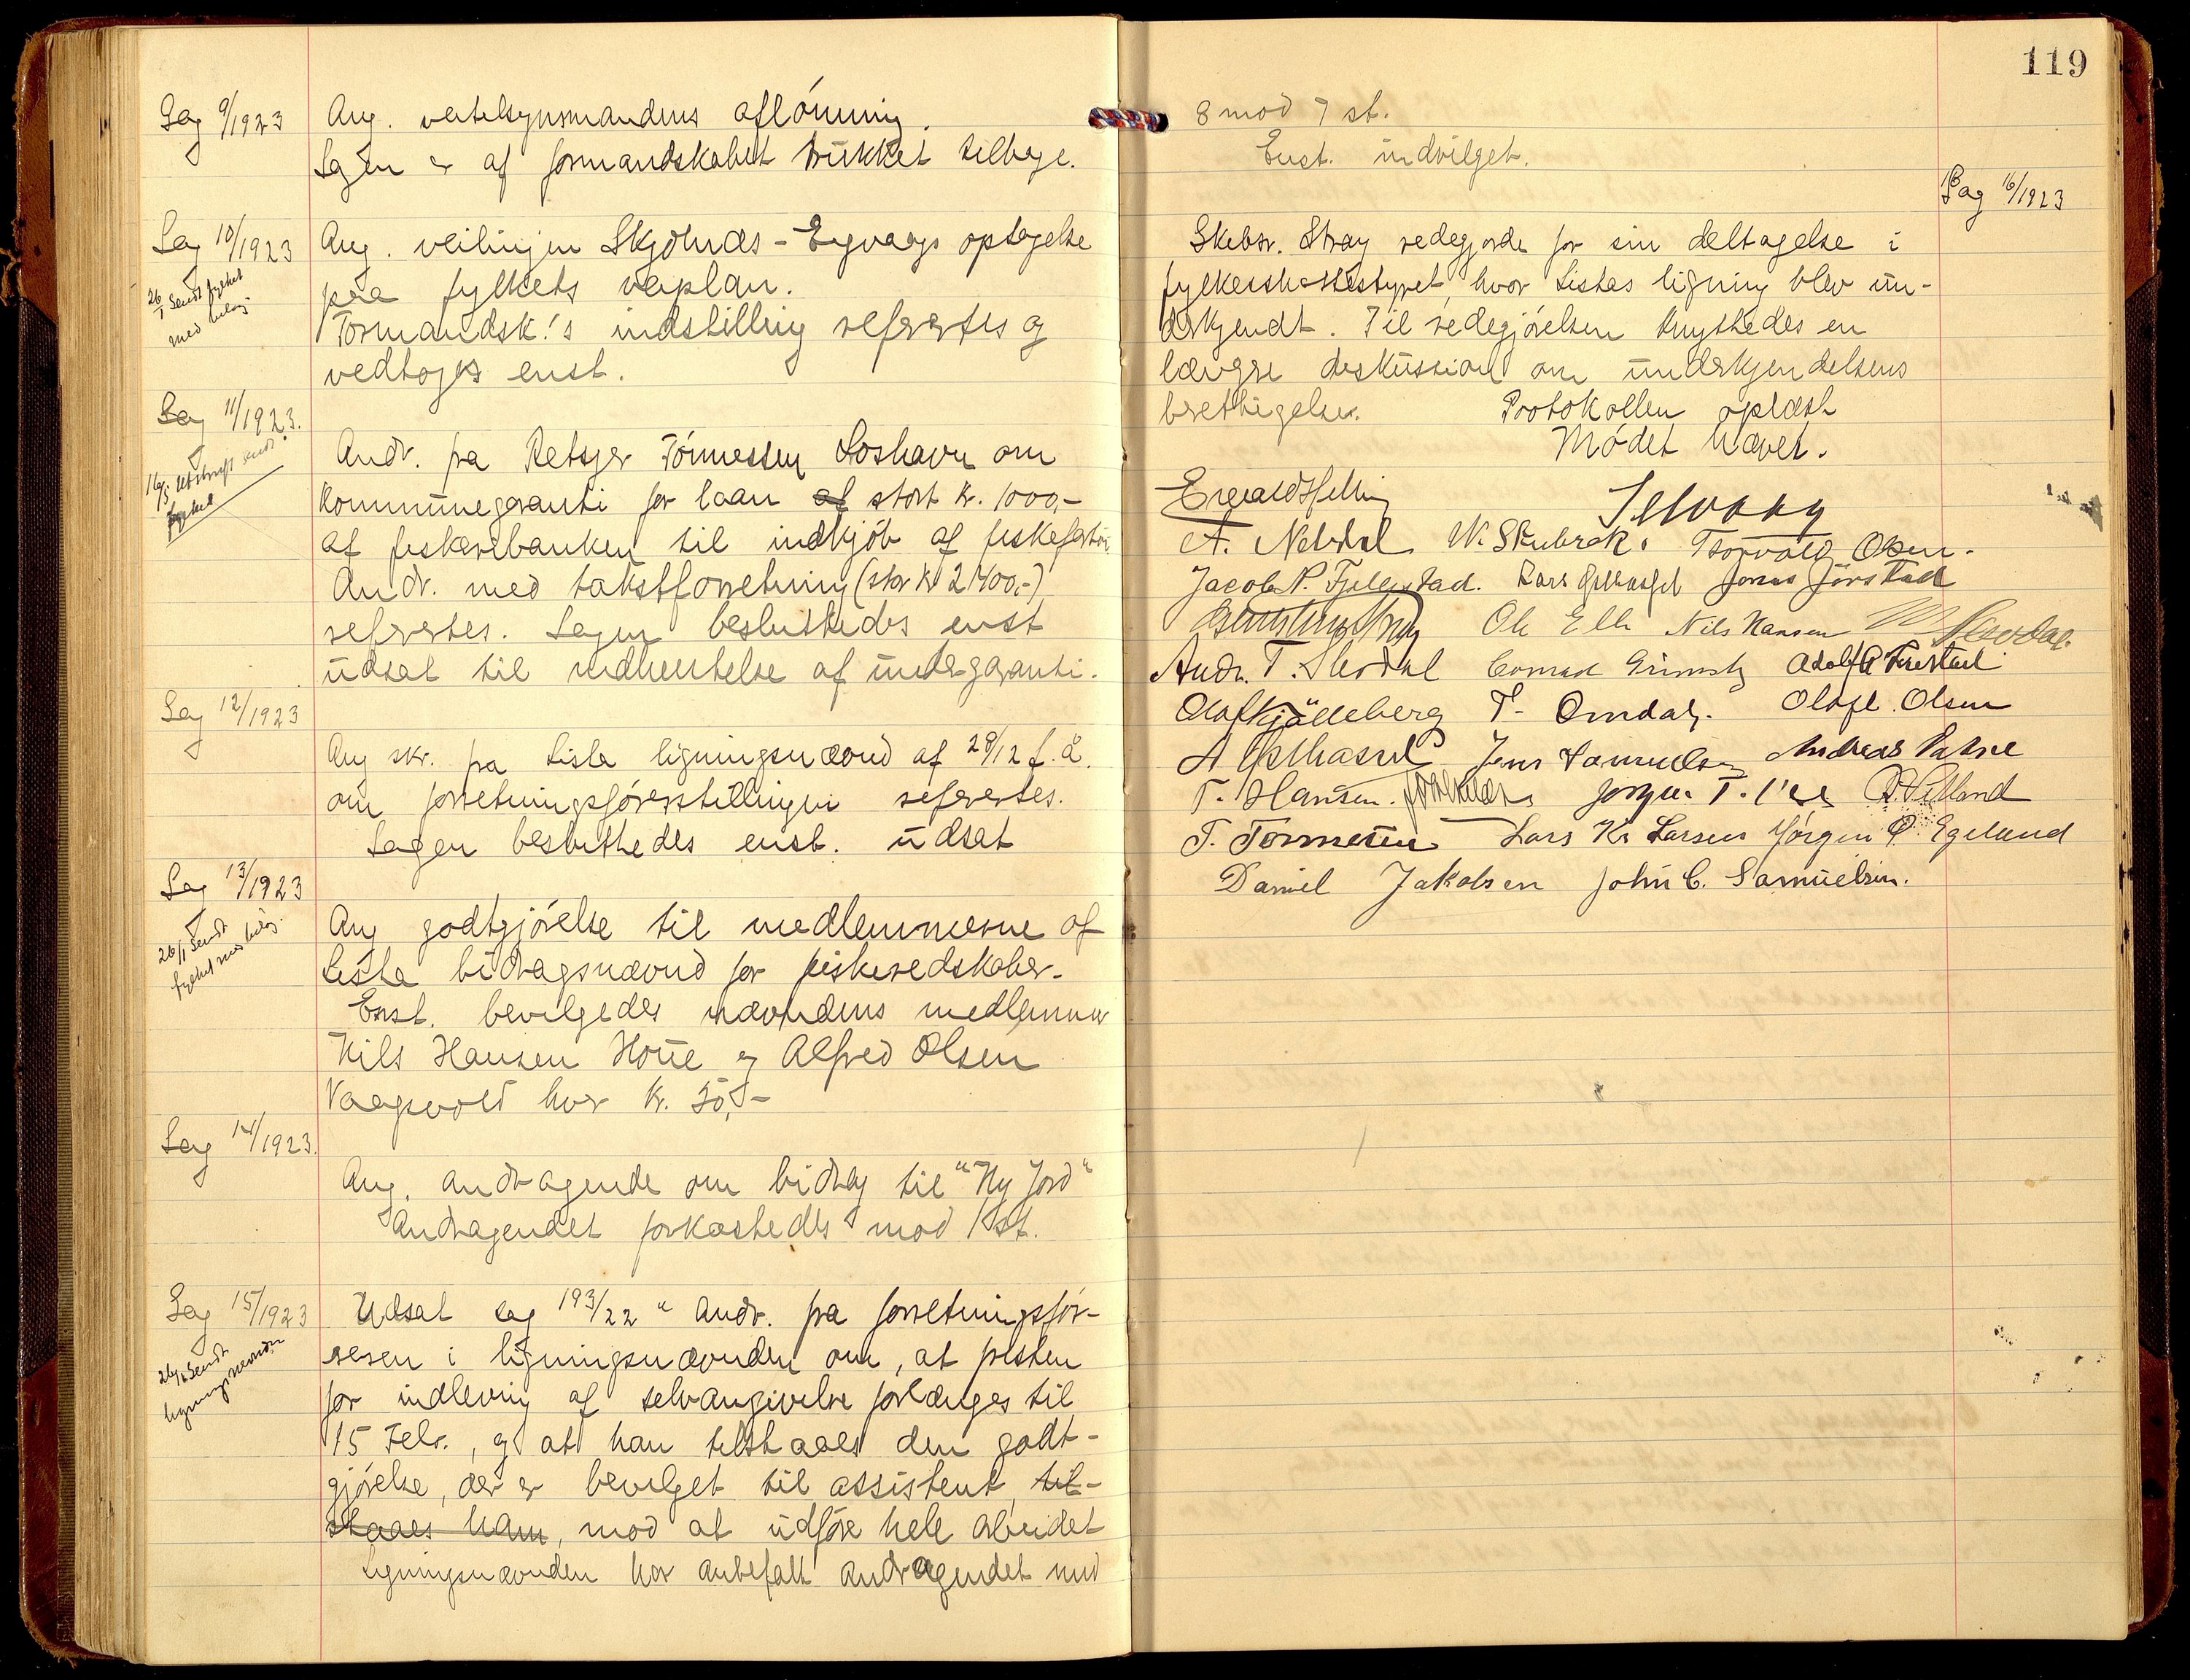 Sag 9/1923
Ang. veitilsynsmandens aflönning.
Sagen er af formandskabet trukket tilbage.
Sag 10/1923
26/1 Sendt fylket
med bilag
Ang. veilinjen Skjölnes - Eigvaags optagelse
paa fylkets veiplan.
Formandsk.'s indstilling refertes og
vedtoges enst.
Sag 11/1923.
fylket
Andr. fra Retsjer Tönnessen Loshavn om
kommunegaranti for laan af stort kr. 1000,-
af fiskeribanken til indkjöb af fiskefartöi
Andr. med takstforretning (stor kr 2400,-)
refertes. Sagen besluttedes enst
udsat til indhentelse af undergaranti.
Sag 12/1923
Ang skr. fra Lista ligningsnævnd af 28/12 f. å.
om forretningsförerstillingen refertes.
Sagen besluttedes enst. udsat
Sag 13/1923
26/1 Sendt
fylket med bilag.
Ang godtgjörelse til medlemmerne af
Lista bidragsnævnd for fiskeredskaber.
Enst. bevilgedes nævndens medlemmer
Nils Hansen Houe og Alfred Olsen
Vaagsvold hver kr. 50,-
Sag 14/1923.
Ang. andragende om bidrag til "Ny Jord"
Andragendet forkastedes mod 1 st.
Sag 15/1923
26/1 Sendt
ligningsnævnden
Udsat sag 193/22 " Andr. fra forretningsför-
reren i ligningsnævnden om, at fristen
for indlevring af selvangivelse forlænges til
15 Febr., og at han tilstaaes den godt-
gjörelse, der er bevilget til assistent, til-
staaes ham, mod at udföre hele arbeidet
Ligningsnævnden har anbefalt andragendet med
119
8 mod 7 st.
Enst. indvilget.
Sag 16/1923
Skebsr. Stray redegjorde for sin deltagelse i
fylkesskattestyret hvor Listas ligning blev un-
derkjendt. Til redegjörelsen knyttedes en
længre diskussion om underkjendelsens
berettigelse. Protokollen oplæst
Mödet hævet.
A. Nebdal W. Stubrak. Thorvald Olsen.
Jacob P. Fjellestad. Jonas Jörstad
Ole Elle Nils Hansen
Andr. T. Slevdal Conrad Grimsby Adolf A Firestad
Olaf Kjölleberg T. Omdal. Olaf E. Olsen
Jens Samuelsen Andreas
T. Hansen. Jörgen T.
T. Tönnesen Lars Kr Larsen Jörgen O. Egeland
Daniel Jakobsen John C. Samuelsen.